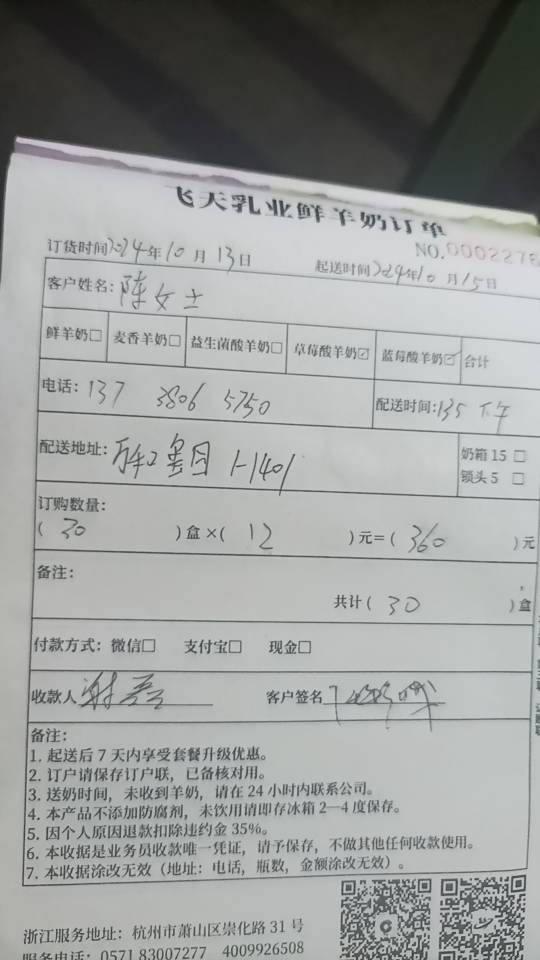 飞天乳业鲜羊奶订单
NO.0002276
订货时间2024年10月13日
起送时间2024年10月15日
客户姓名:陈女士
鲜羊奶□ 麦香羊奶□ 益生菌酸羊奶□ 草莓酸羊奶☑ 蓝莓酸羊奶☑ 合计
电话:137 3806 5750 配送时间:135 下午
配送地址: 1-1401
奶箱15 □
锁头5 □
订购数量:
( 30 )盒×( 12 )元=( 360 )元
备注:
共计( 30 )盒
付款方式: 微信□ 支付宝□ 现金□
收款人 客户签名
备注:
1. 起送后7天内享受套餐升级优惠。
2. 订户请保存订户联,已备核对用。
3. 送奶时间,未收到羊奶,请在24小时内联系公司。
4. 本产品不添加防腐剂,未饮用请即存冰箱2—4度保存。
5. 因个人原因退款扣除违约金35%。
6. 本收据是业务员收款唯一凭证,请予保存,不做其他任何收款使用。
7. 本收据涂改无效(地址:电话,瓶数,金额涂改无效)。
浙江服务地址:杭州市萧山区崇化路31号
服务电话:0571 83007277 4009926508